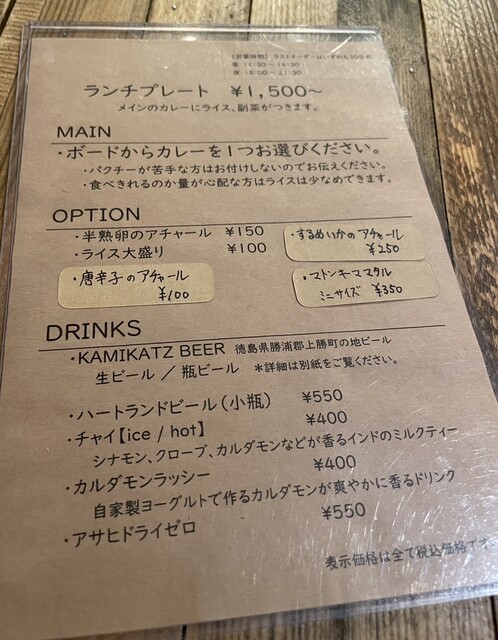 【営業時間】ラストオーダーはいずれも30分前
昼 11:30-16:30
夜 18:00-21:30
ランチプレート ¥1,500〜
メインのカレーにライス、副菜がつきます。
MAIN
・ボードからカレーを1つお選びください。
・パクチーが苦手な方はお付けしないのでお伝えください。
・食べきれるのか量が心配な方はライスは少なめできます。
OPTION
・半熟卵のアチャール ¥150
・ライス大盛り ¥100
・するめいかのアチャール
¥250
・唐辛子のアチャール
¥100
・マトンキーママタル
ミニサイズ ¥350
DRINKS
・KAMIKATZ BEER 徳島県勝浦郡上勝町の地ビール
生ビール / 瓶ビール *詳細は別紙をご覧ください。
・ハートランドビール(小瓶) ¥550
・チャイ【ice / hot】 ¥400
シナモン、クローブ、カルダモンなどが香るインドのミルクティー
・カルダモンラッシー ¥400
自家製ヨーグルトで作るカルダモンが爽やかに香るドリンク
・アサヒドライゼロ ¥550
表示価格は全て税込価格です